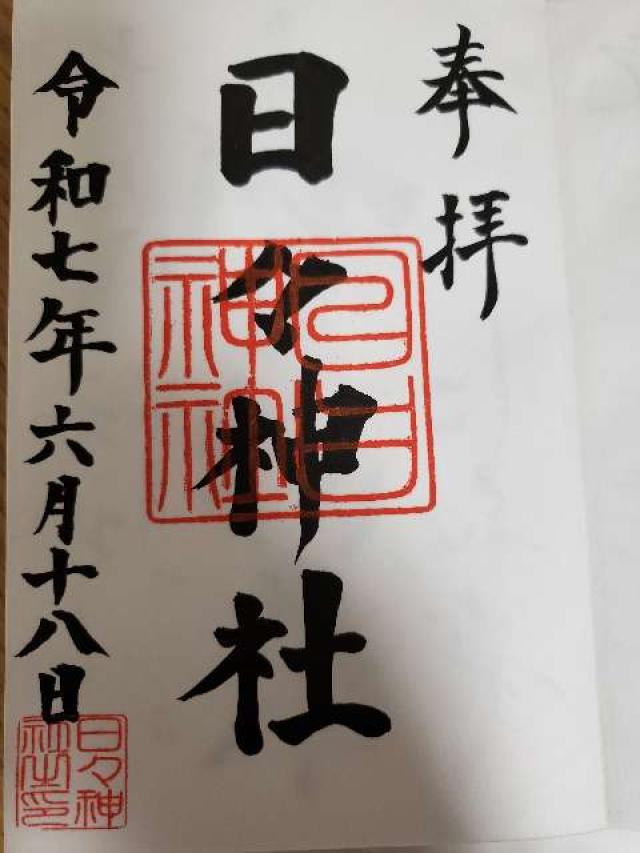 奉拝
日々神社
令和七年六月十八日
日々神
社之印